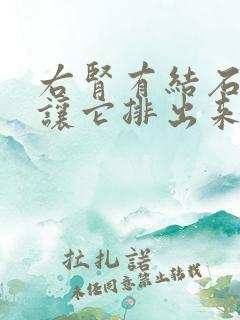 右腎有結石
讓它排出来
拉扎諾
未经同意禁止转载